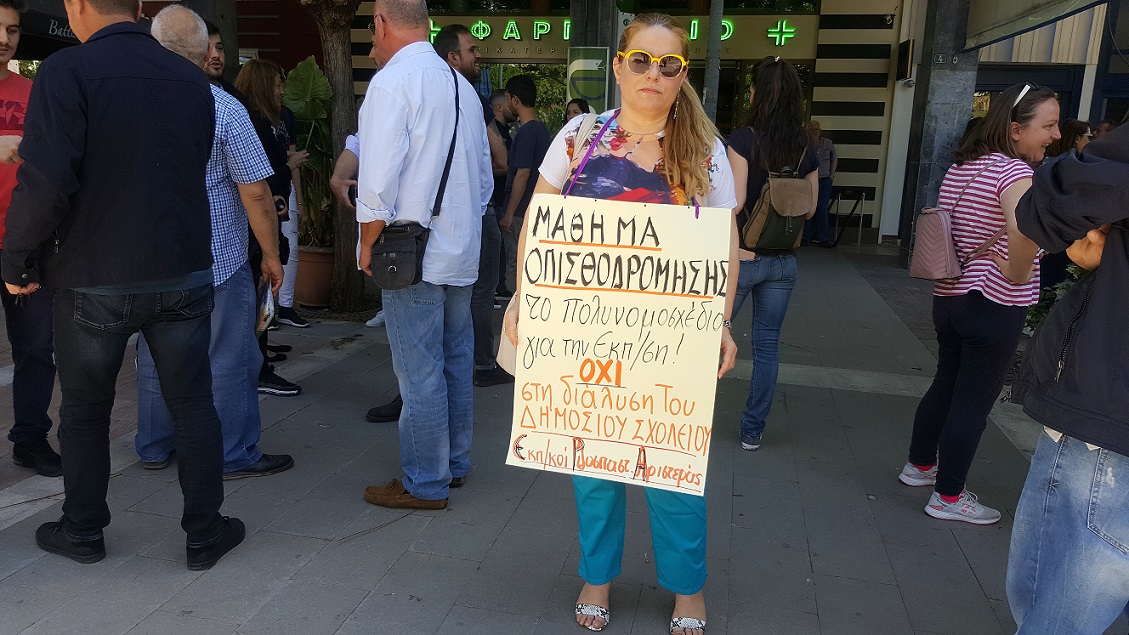 ΦΑΡΜ ΙΟ
ΜΑΘΗΜΑ
ΟΠΙΣΘΟΔΡΟΜΗΣΗΣ
το Πολυνομοσχέδιο
για την Εκπ/ση!
ΟΧΙ
στη διάλυση Του
ΔΗΜΟΣΙΟΥ ΣΧΟΛΕΙΟΥ
Εκπ/κοί Ριζοσπαστ. Αριστεράς